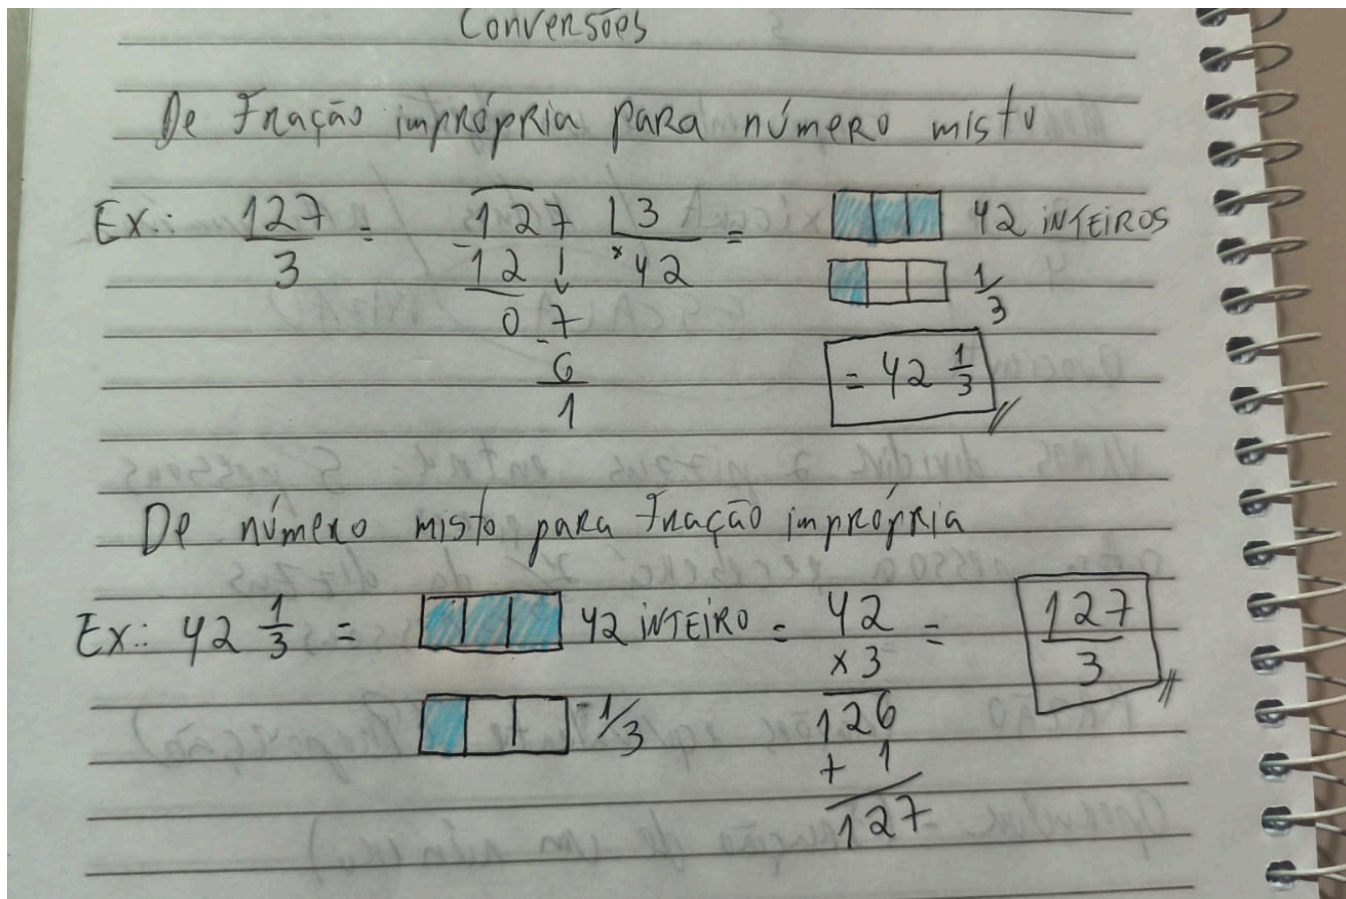 Conversões
De Fração imprópria para número misto
Ex: 127/3 = 127 | 3 = 42 INTEIROS
-12 ↓ × 42 1/3
0 7
- 6 = 42 1/3
1
De número misto para Fração imprópria
Ex.: 42 1/3 = 42 INTEIRO = 42 = 127/3
x 3
1/3 126
+ 1
127